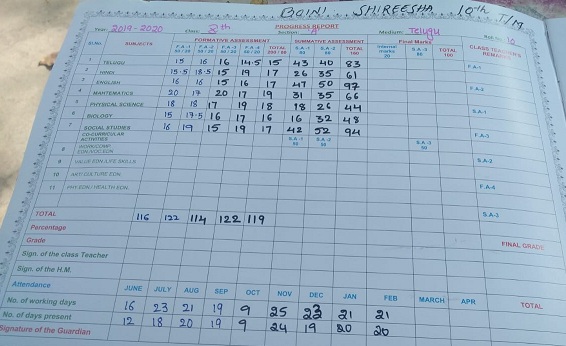 BOINI. SHIREESHA 10th T/M
PROGRESS REPORT
Year: 2019-2020 Class: 8th Section: "A" Medium: Telugu Roll No. 10
Sl.No. SUBJECTS FORMATIVE ASSESSMENT SUMMATIVE ASSESSMENT Final Marks CLASS TEACHER'S REMARKS
F.A-1 50 / 20 F.A-2 50 / 20 F.A-3 50 / 20 F.A-4 50 / 20 TOTAL 200 / 20 S.A-1 S.A-2 TOTAL 100 Internal marks 20 S.A-3 80 TOTAL 100
1 TELUGU 15 16 16 14.5 15 43 40 83 F.A-1
2 HINDI 15.5 18.5 15 19 17 26 35 61
3 ENGLISH 16 16 15 16 17 47 50 97 F.A-2
4 MATHEMATICS 20 17 20 17 19 31 35 66
5 PHYSICAL SCIENCE 18 18 17 19 18 18 26 44 S.A-1
6 BIOLOGY 15 17.5 16 17 16 16 32 48
7 SOCIAL STUDIES 16 19 15 19 17 42 52 94 F.A-3
CO-CURRICULAR ACTIVITIES S.A-1 50 S.A-2 50 S.A-3 50
8 WORK/COMP. EDN/VOC.EDN.
9 VALUE EDN./LIFE SKILLS S.A-2
10 ART/ CULTURE EDN.
11 PHY.EDN / HEALTH EDN. F.A-4
TOTAL 116 122 114 122 119 S.A-3
Percentage
Grade FINAL GRADE
Sign. of the class Teacher
Sign. of the H.M.
Attendance JUNE JULY AUG SEP OCT NOV DEC JAN FEB MARCH APR TOTAL
No. of working days 16 23 21 19 9 25 23 21 21
No. of days present 12 18 20 19 9 24 19 20 20
Signature of the Guardian